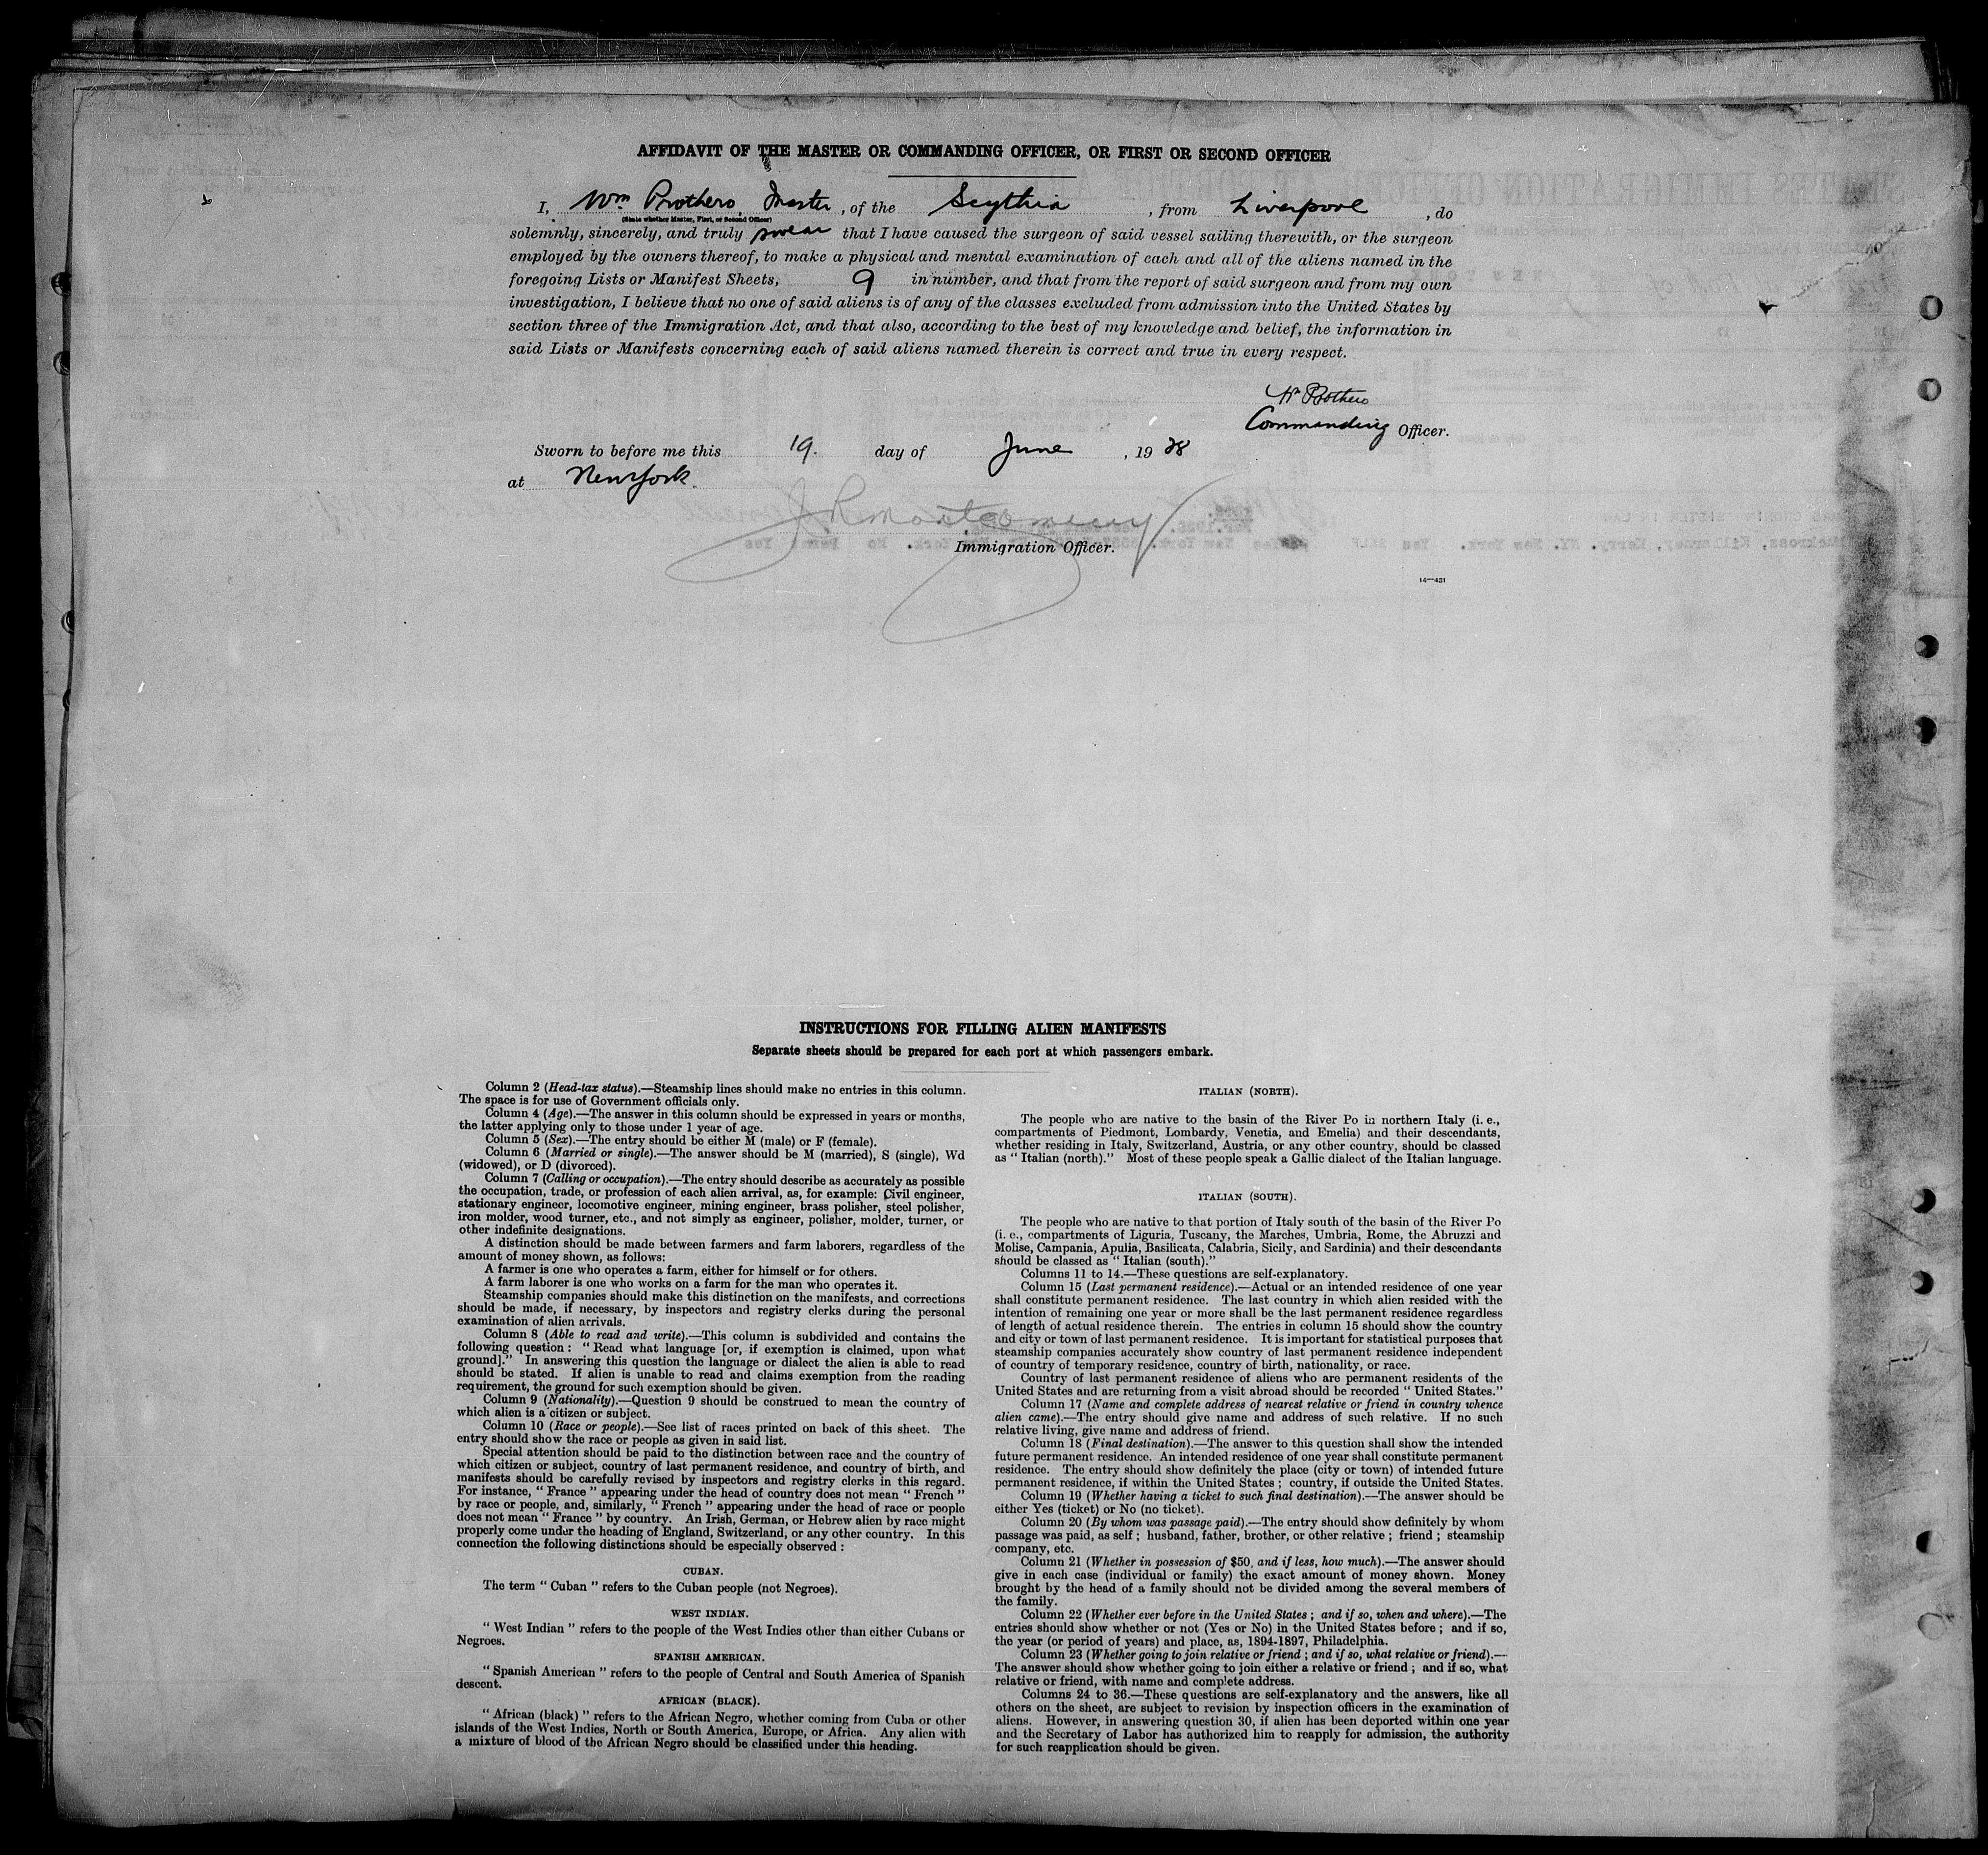 AFFIDAVIT OF THE MASTER OR COMMANDING OFFICER, OR FIRST OR SECOND OFFICER
I, Wm Prothero, Master, of the Scythia, from Liverpool, do
(State whether Master, First, or Second Officer)
solemnly, sincerely, and truly swear that I have caused the surgeon of said vessel sailing therewith, or the surgeon
employed by the owners thereof, to make a physical and mental examination of each and all of the aliens named in the
foregoing Lists or Manifest Sheets, 9 in number, and that from the report of said surgeon and from my own
investigation, I believe that no one of said aliens is of any of the classes excluded from admission into the United States by
section three of the Immigration Act, and that also, according to the best of my knowledge and belief, the information in
said Lists or Manifests concerning each of said aliens named therein is correct and true in every respect.
Wm Prothero
Commanding Officer.
Sworn to before me this 19. day of June, 1928
at New York.
J R Montgomery
Immigration Officer.
14—431
INSTRUCTIONS FOR FILLING ALIEN MANIFESTS
Separate sheets should be prepared for each port at which passengers embark.
Column 2 (Head-tax status).—Steamship lines should make no entries in this column.
The space is for use of Government officials only.
Column 4 (Age).—The answer in this column should be expressed in years or months,
the latter applying only to those under 1 year of age.
Column 5 (Sex).—The entry should be either M (male) or F (female).
Column 6 (Married or single).—The answer should be M (married), S (single), Wd
(widowed), or D (divorced).
Column 7 (Calling or occupation).—The entry should describe as accurately as possible
the occupation, trade, or profession of each alien arrival, as, for example: Civil engineer,
stationary engineer, locomotive engineer, mining engineer, brass polisher, steel polisher,
iron molder, wood turner, etc., and not simply as engineer, polisher, molder, turner, or
other indefinite designations.
A distinction should be made between farmers and farm laborers, regardless of the
amount of money shown, as follows:
A farmer is one who operates a farm, either for himself or for others.
A farm laborer is one who works on a farm for the man who operates it.
Steamship companies should make this distinction on the manifests, and corrections
should be made, if necessary, by inspectors and registry clerks during the personal
examination of alien arrivals.
Column 8 (Able to read and write).—This column is subdivided and contains the
following question: "Read what language [or, if exemption is claimed, upon what
ground]." In answering this question the language or dialect the alien is able to read
should be stated. If alien is unable to read and claims exemption from the reading
requirement, the ground for such exemption should be given.
Column 9 (Nationality).—Question 9 should be construed to mean the country of
which alien is a citizen or subject.
Column 10 (Race or people).—See list of races printed on back of this sheet. The
entry should show the race or people as given in said list.
Special attention should be paid to the distinction between race and the country of
which citizen or subject, country of last permanent residence, and country of birth, and
manifests should be carefully revised by inspectors and registry clerks in this regard.
For instance, "France" appearing under the head of country does not mean "French"
by race or people, and, similarly, "French" appearing under the head of race or people
does not mean "France" by country. An Irish, German, or Hebrew alien by race might
properly come under the heading of England, Switzerland, or any other country. In this
connection the following distinctions should be especially observed:
CUBAN.
The term "Cuban" refers to the Cuban people (not Negroes).
WEST INDIAN.
"West Indian" refers to the people of the West Indies other than either Cubans or
Negroes.
SPANISH AMERICAN.
"Spanish American" refers to the people of Central and South America of Spanish
descent.
AFRICAN (BLACK).
"African (black)" refers to the African Negro, whether coming from Cuba or other
islands of the West Indies, North or South America, Europe, or Africa. Any alien with
a mixture of blood of the African Negro should be classified under this heading.
ITALIAN (NORTH).
The people who are native to the basin of the River Po in northern Italy (i. e.,
compartments of Piedmont, Lombardy, Venetia, and Emelia) and their descendants,
whether residing in Italy, Switzerland, Austria, or any other country, should be classed
as "Italian (north)." Most of these people speak a Gallic dialect of the Italian language.
ITALIAN (SOUTH).
The people who are native to that portion of Italy south of the basin of the River Po
(i. e., compartments of Liguria, Tuscany, the Marches, Umbria, Rome, the Abruzzi and
Molise, Campania, Apulia, Basilicata, Calabria, Sicily, and Sardinia) and their descendants
should be classed as "Italian (south)."
Columns 11 to 14.—These questions are self-explanatory.
Column 15 (Last permanent residence).—Actual or an intended residence of one year
shall constitute permanent residence. The last country in which alien resided with the
intention of remaining one year or more shall be the last permanent residence regardless
of length of actual residence therein. The entries in column 15 should show the country
and city or town of last permanent residence. It is important for statistical purposes that
steamship companies accurately show country of last permanent residence independent
of country of temporary residence, country of birth, nationality, or race.
Country of last permanent residence of aliens who are permanent residents of the
United States and are returning from a visit abroad should be recorded "United States."
Column 17 (Name and complete address of nearest relative or friend in country whence
alien came).—The entry should give name and address of such relative. If no such
relative living, give name and address of friend.
Column 18 (Final destination).—The answer to this question shall show the intended
future permanent residence. An intended residence of one year shall constitute permanent
residence. The entry should show definitely the place (city or town) of intended future
permanent residence, if within the United States; country, if outside the United States.
Column 19 (Whether having a ticket to such final destination).—The answer should be
either Yes (ticket) or No (no ticket).
Column 20 (By whom was passage paid).—The entry should show definitely by whom
passage was paid, as self; husband, father, brother, or other relative; friend; steamship
company, etc.
Column 21 (Whether in possession of $50, and if less, how much).—The answer should
give in each case (individual or family) the exact amount of money shown. Money
brought by the head of a family should not be divided among the several members of
the family.
Column 22 (Whether ever before in the United States; and if so, when and where).—The
entries should show whether or not (Yes or No) in the United States before; and if so,
the year (or period of years) and place, as, 1894-1897, Philadelphia.
Column 23 (Whether going to join relative or friend; and if so, what relative or friend).—
The answer should show whether going to join either a relative or friend; and if so, what
relative or friend, with name and complete address.
Columns 24 to 36.—These questions are self-explanatory and the answers, like all
others on the sheet, are subject to revision by inspection officers in the examination of
aliens. However, in answering question 30, if alien has been deported within one year
and the Secretary of Labor has authorized him to reapply for admission, the authority
for such reapplication should be given.